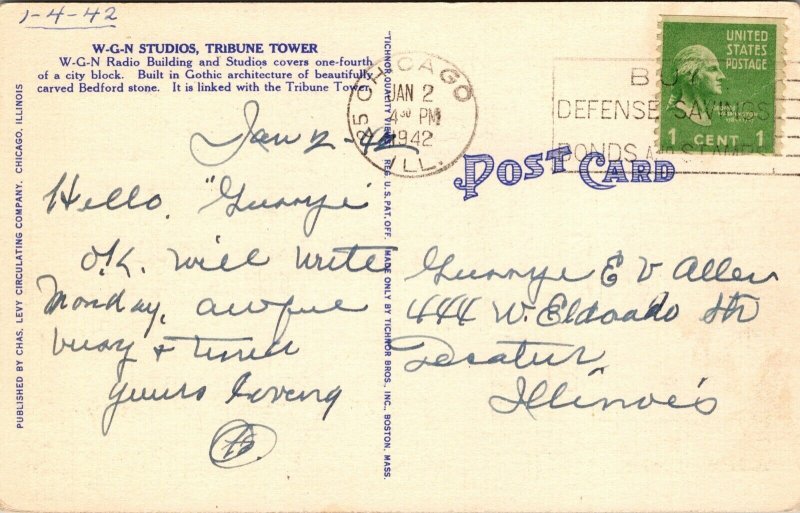 1-4-42
W-G-N STUDIOS, TRIBUNE TOWER
W-G-N Radio Building and Studios covers one-fourth
of a city block. Built in Gothic architecture of beautifully
carved Bedford stone. It is linked with the Tribune Tower.
PUBLISHED BY CHAS. LEVY CIRCULATING COMPANY, CHICAGO, ILLINOIS
Jan 2-42
Hello, "Gurrye"
O.K. will write
Monday, awful
busy & tired
Yours Loving
TICHNOR QUALITY VIEWS REG. U.S. PAT. OFF. MADE ONLY BY TICHNOR BROS., INC., BOSTON, MASS.
CHICAGO
25
JAN 2
4 30 PM
1942
ILL.
BUY
DEFENSE SAVINGS
BONDS AND STAMPS
UNITED
STATES
POSTAGE
1 CENT 1
POST CARD
Gurrye E V Allen
444 W. Eldorado Str
Decatur
Illinois